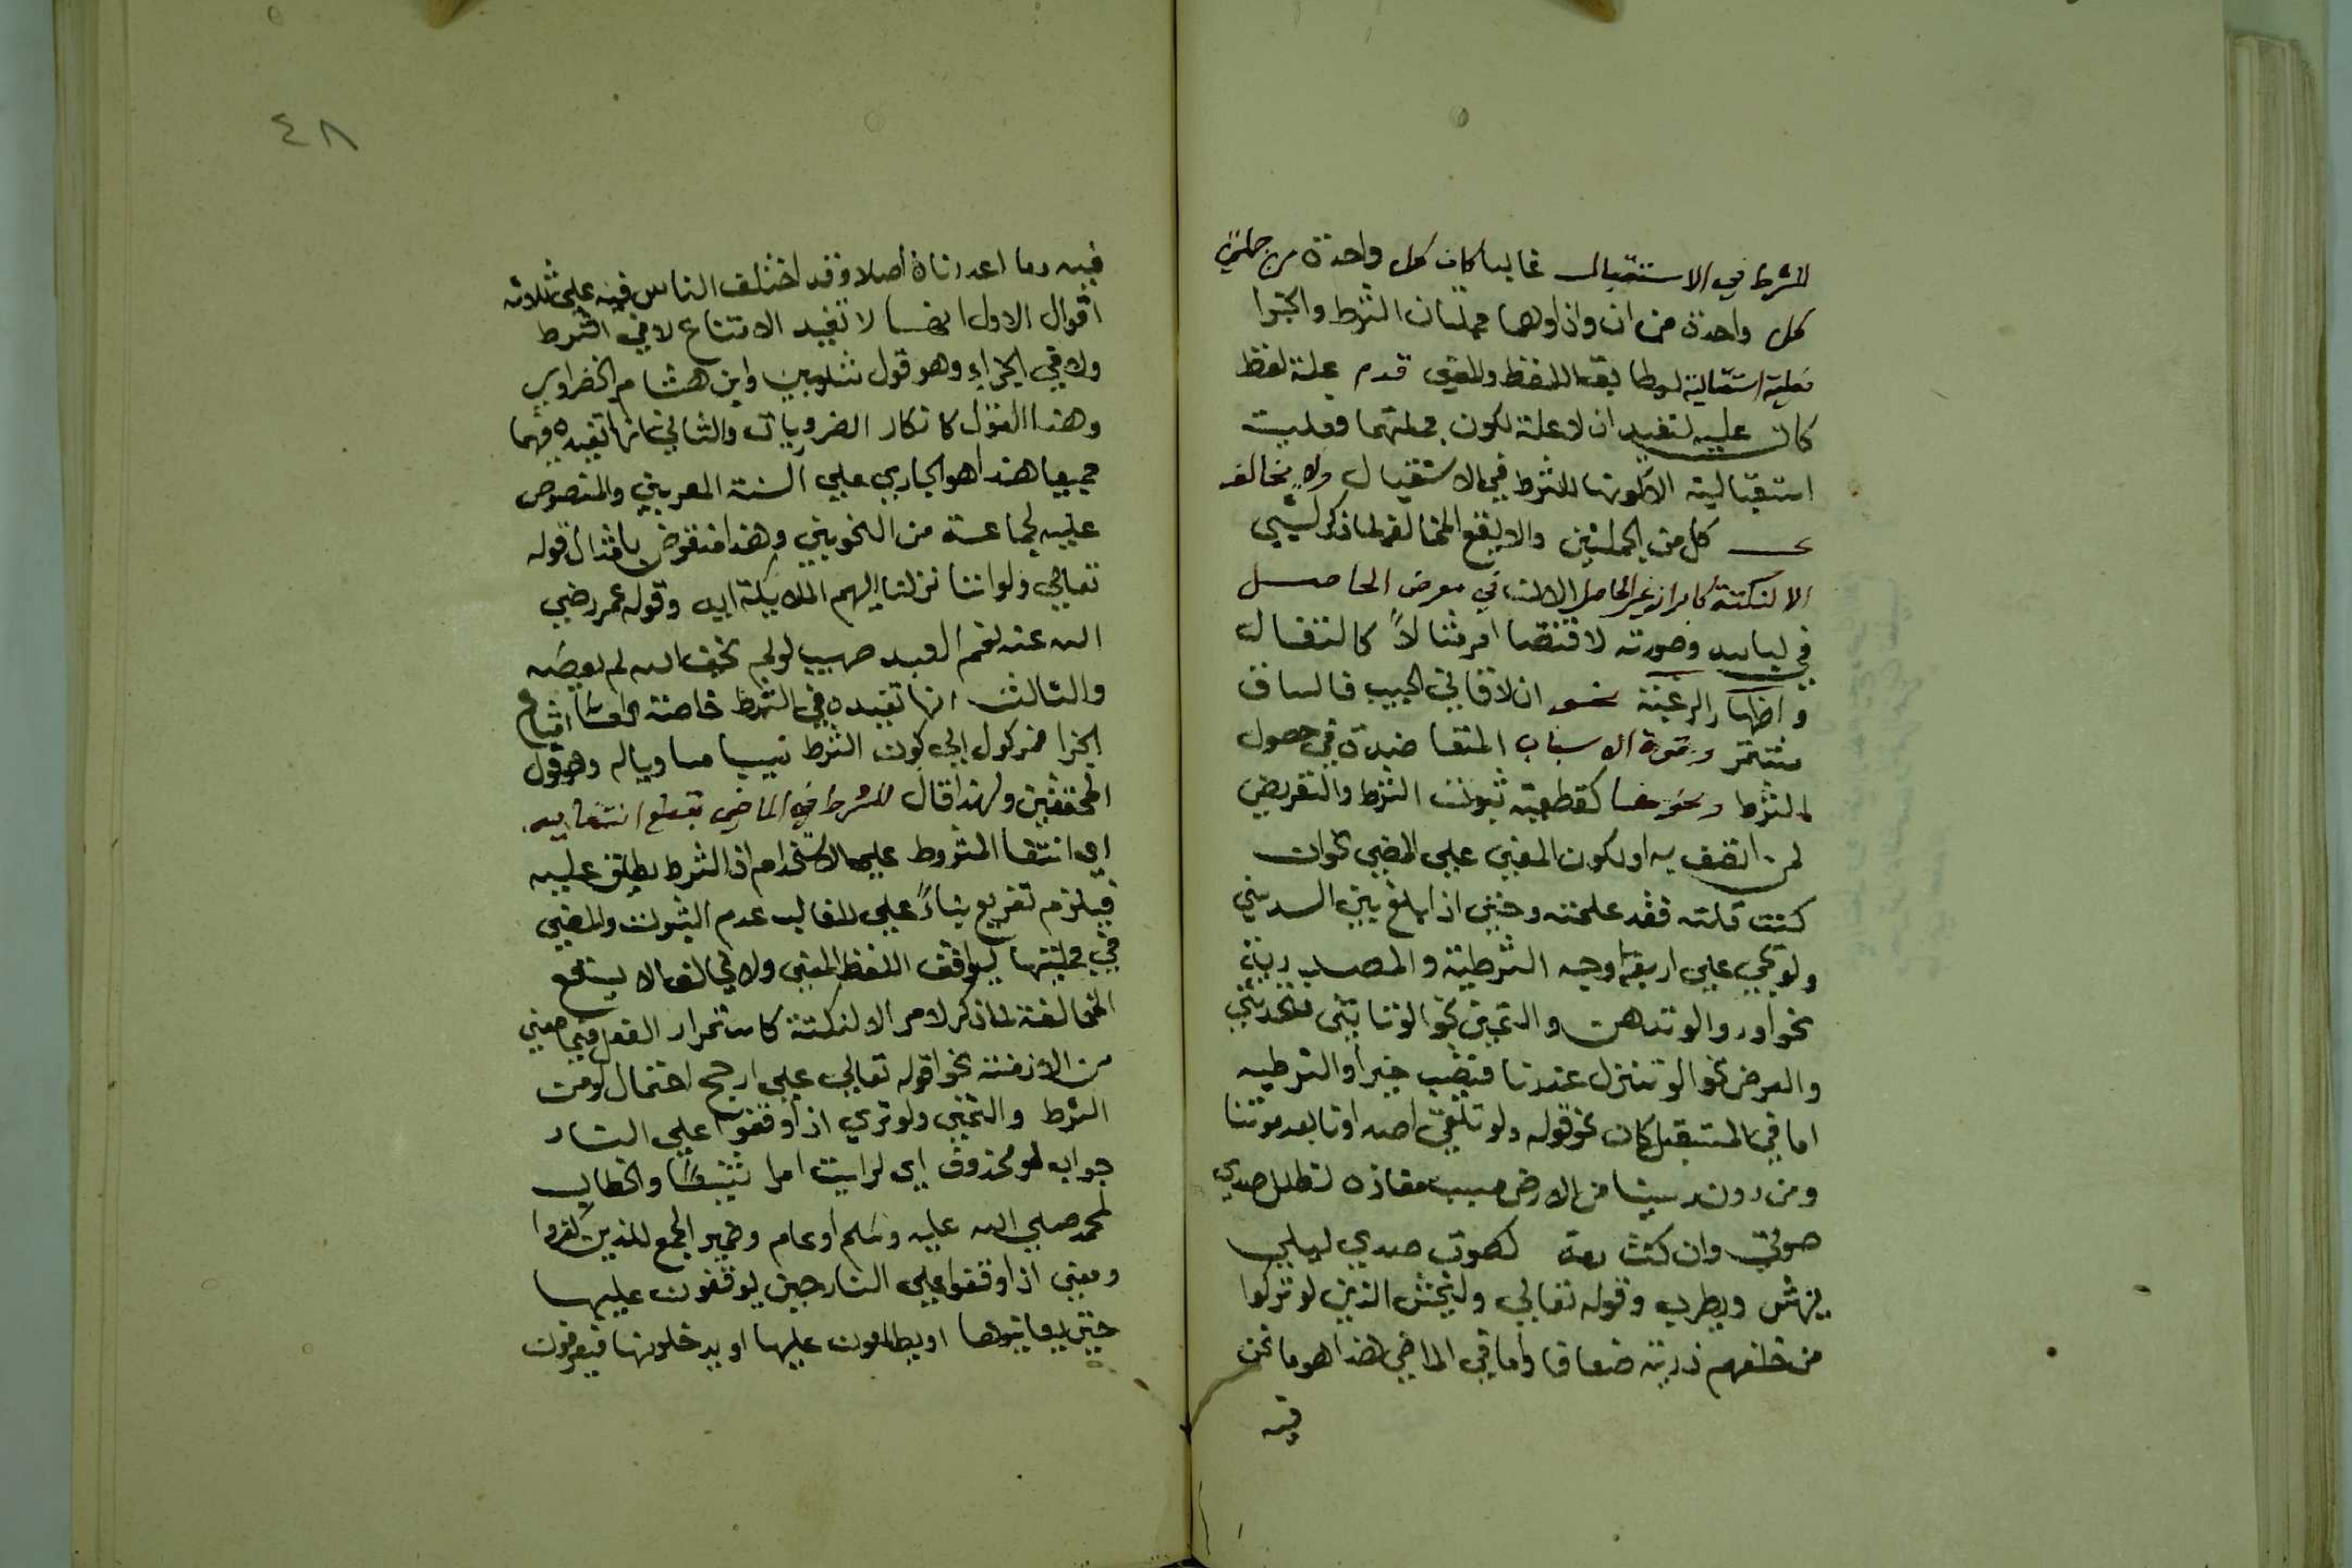 للشرط في الاستقبال غالبا كان كل واحدة من جملتي
كل واحدة من ان واذا وهما جملتان الشرط والجزا
فعلية استقبالية ليطابق اللفظ والمعنى قدم علة لفظ
كان عليه لتفيد ان لا علة لكون جملتهما فعليت
استقبالية الا لكونها للشرط في الاستقبال ولا يخالف
كل من الجملتين والا يقع المخالفة لما ذكر لشيي
الا لنكتة كابراز غير الحاصل في معرض الحاصل
في لباسه وصورته لاقتضا امر مثالا كالتفال
واظهار الرغبة نحو ان لاقاني الحبيب فالساق
وقوة الاسباب المتعاضدة في حصول
الشرط ونحوها كقطعية ثبوت الشرط والتعريض
لمن اتصف به او لكون المعني علي المضي نحو ان
كنت قلته فقد علمته وحتى اذا بلغ بين السدين
ولو تجي علي اربعة اوجه الشرطية والمصدرية
نحو اود والو تدهن والتمني نحو لو تاتيني فتحدثني
والعرض نحو الو تنزل عندنا فتصيب خيرا والشرطيه
اما في المستقبل كان نحو قوله ولو تلتقي اصداونا بعد موتنا
ومن دون رمسينا من الارض سبسب لظل صدي
صوتي وان كنت رمة لصوت صدي ليلي
يهش ويطرب وقوله تعالي وليخش الذين لو تركوا
من خلفهم ذرية ضعافا واما في الماضي هذا هو ما نحن
فيه
٤٨
فيه وما اعددناه أصلا وقد اختلف الناس فيه علي ثلاثه
اقوال الاول انها لا تفيد الامتناع لا في الشرط
ولا في الجزاء وهو قول شلوبين وابن هشام الخضراوي
وهذا القول كانكار الضروريات والثاني انها تفيده فيهما
جميعا هذا هو الجاري علي السنة المعربين والمنصوص
عليه لجماعة من النحويين وهذا منقوض بامثال قوله
تعالي ولو اننا نزلنا اليهم الملايكة ايه وقوله عمر رضي
الله عنه نعم العبد صهيب لو لم يخف الله لم يعصه
والثالث انها تفيده في الشرط خاصة امتناع
الجزا فموكول الي كون الشرط سببا مساويا له وهو قول
المحققين ولهذا قال للشرط في الماضي بقطع انتفايه
اي انتفا المشروط علي الاستخدام اذ الشرط يطلق عليه
فيلزم تفريع بناءً علي الغالب عدم الثبوت والمضي
في جملتيها ليوافق اللفظ المعني ولا يخالف الا يقع
المخالفة لما ذكر لامر الا لنكتة كاستمرار الفعل فيما مضي
من الازمنة نحو قوله تعالي علي ارجح احتمال لو من
الشرط والتمني ولو تري اذ اوقفوا علي النار
جواب لو محذوف اي لرايت امرا والخطاب
لمحمد صلي الله عليه وسلم او عام وضمير الجمع للذين كفروا
ومعني اذ اوقفوا علي النار حين يوقفون عليها
حتى يعاينوها او يطلعون عليها او يدخلونها فيعرفون